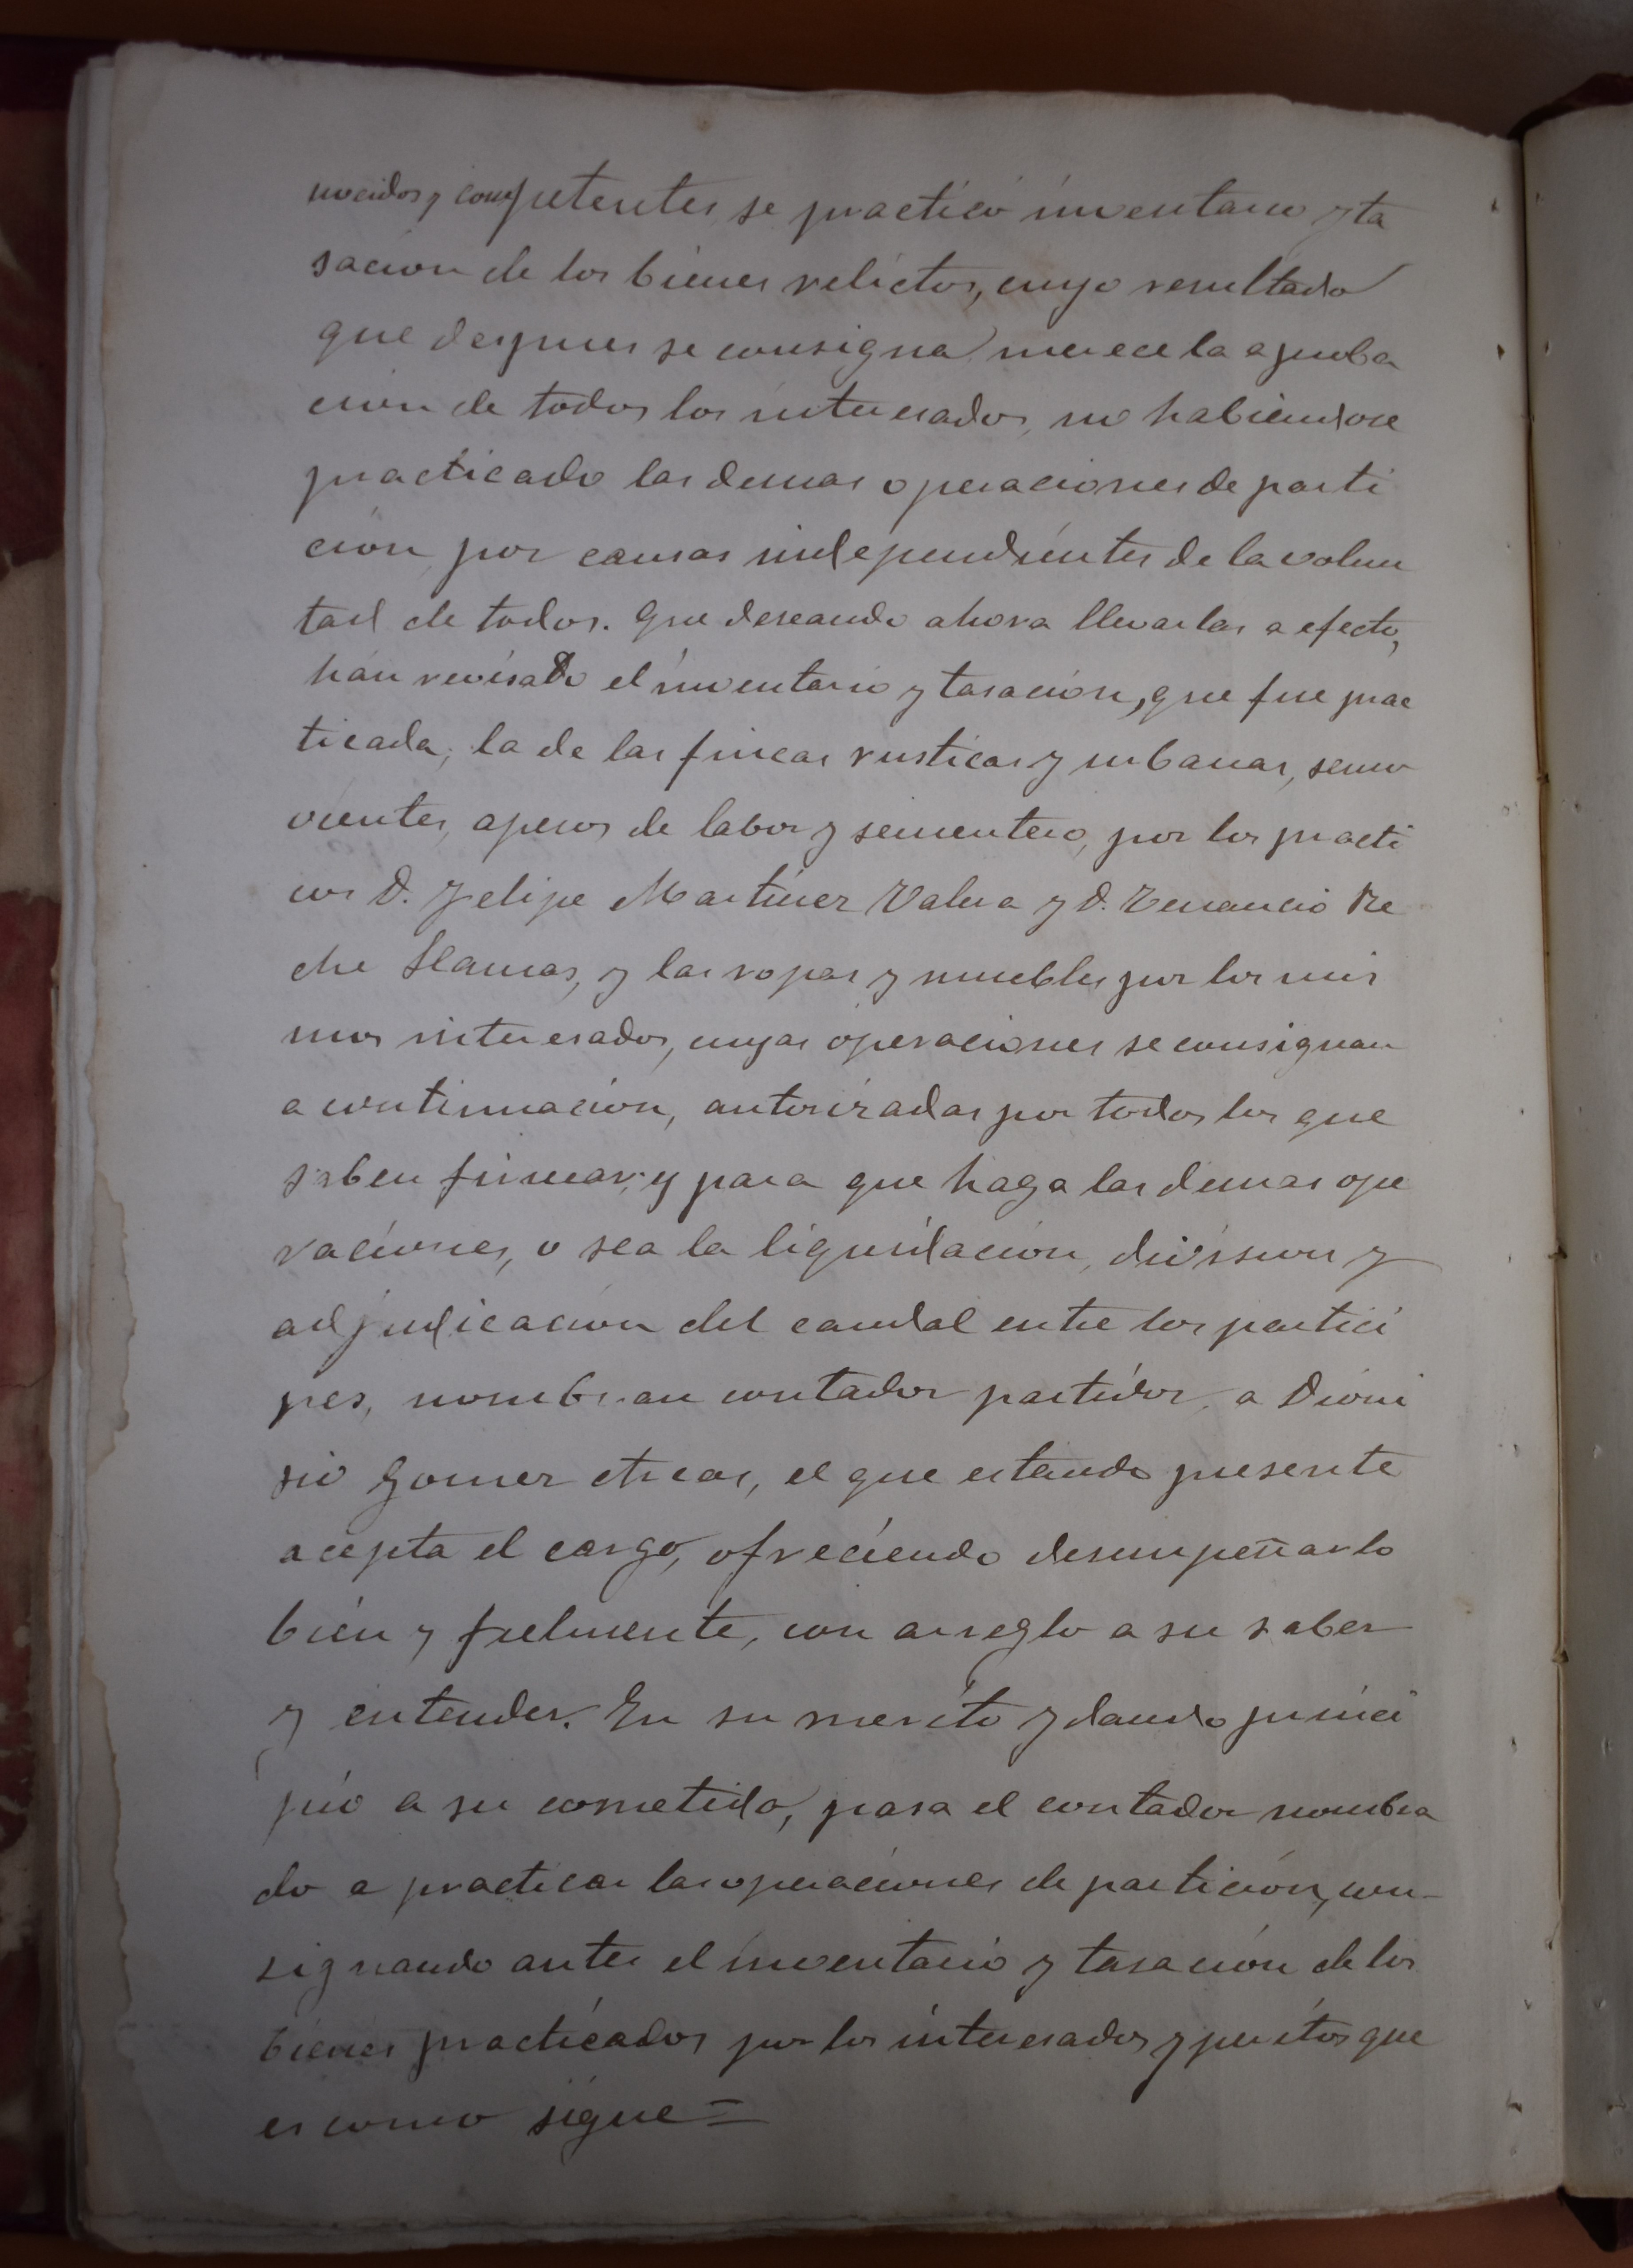 nocidos y competentes, se practicó inventario y ta
sacion de los bienes relictos, cuyo resultado
que despues se consigna merece la aproba
cion de todos los interesados, no habiendose
practicado las demas operaciones de parti
cion por causas independientes de la volun
tad de todos. Que deseando ahora llevarlas a efecto,
han revisado el inventario y tasacion, que fue prac
ticada, la de las fincas rusticas y urbanas, semo
vientes, aperos de labor y sementero, por los practi
cos D. Felipe Martinez Valera y D. Venancio Re
che Llamas, y las ropas y muebles por los mis
mos interesados, cuyas operaciones se consignan
a continuacion, autorizadas por todos los que
saben firmar; y para que haga las demas ope
raciones, o sea la liquidacion, division y
adjudicacion del caudal entre los partici
pes, nombran contador partidor, a Dioni
sio Gomez, el que estando presente
acepta el cargo, ofreciendo desempeñarlo
bien y fielmente, con arreglo a su saber
y entender. En su merito y dando princi
pio a su cometido, pasa el contador nombra
do a practicar las operaciones de particion, con-
signando antes el inventario y tasacion de los
bienes practicados por los interesados y peritos que
es como sigue=